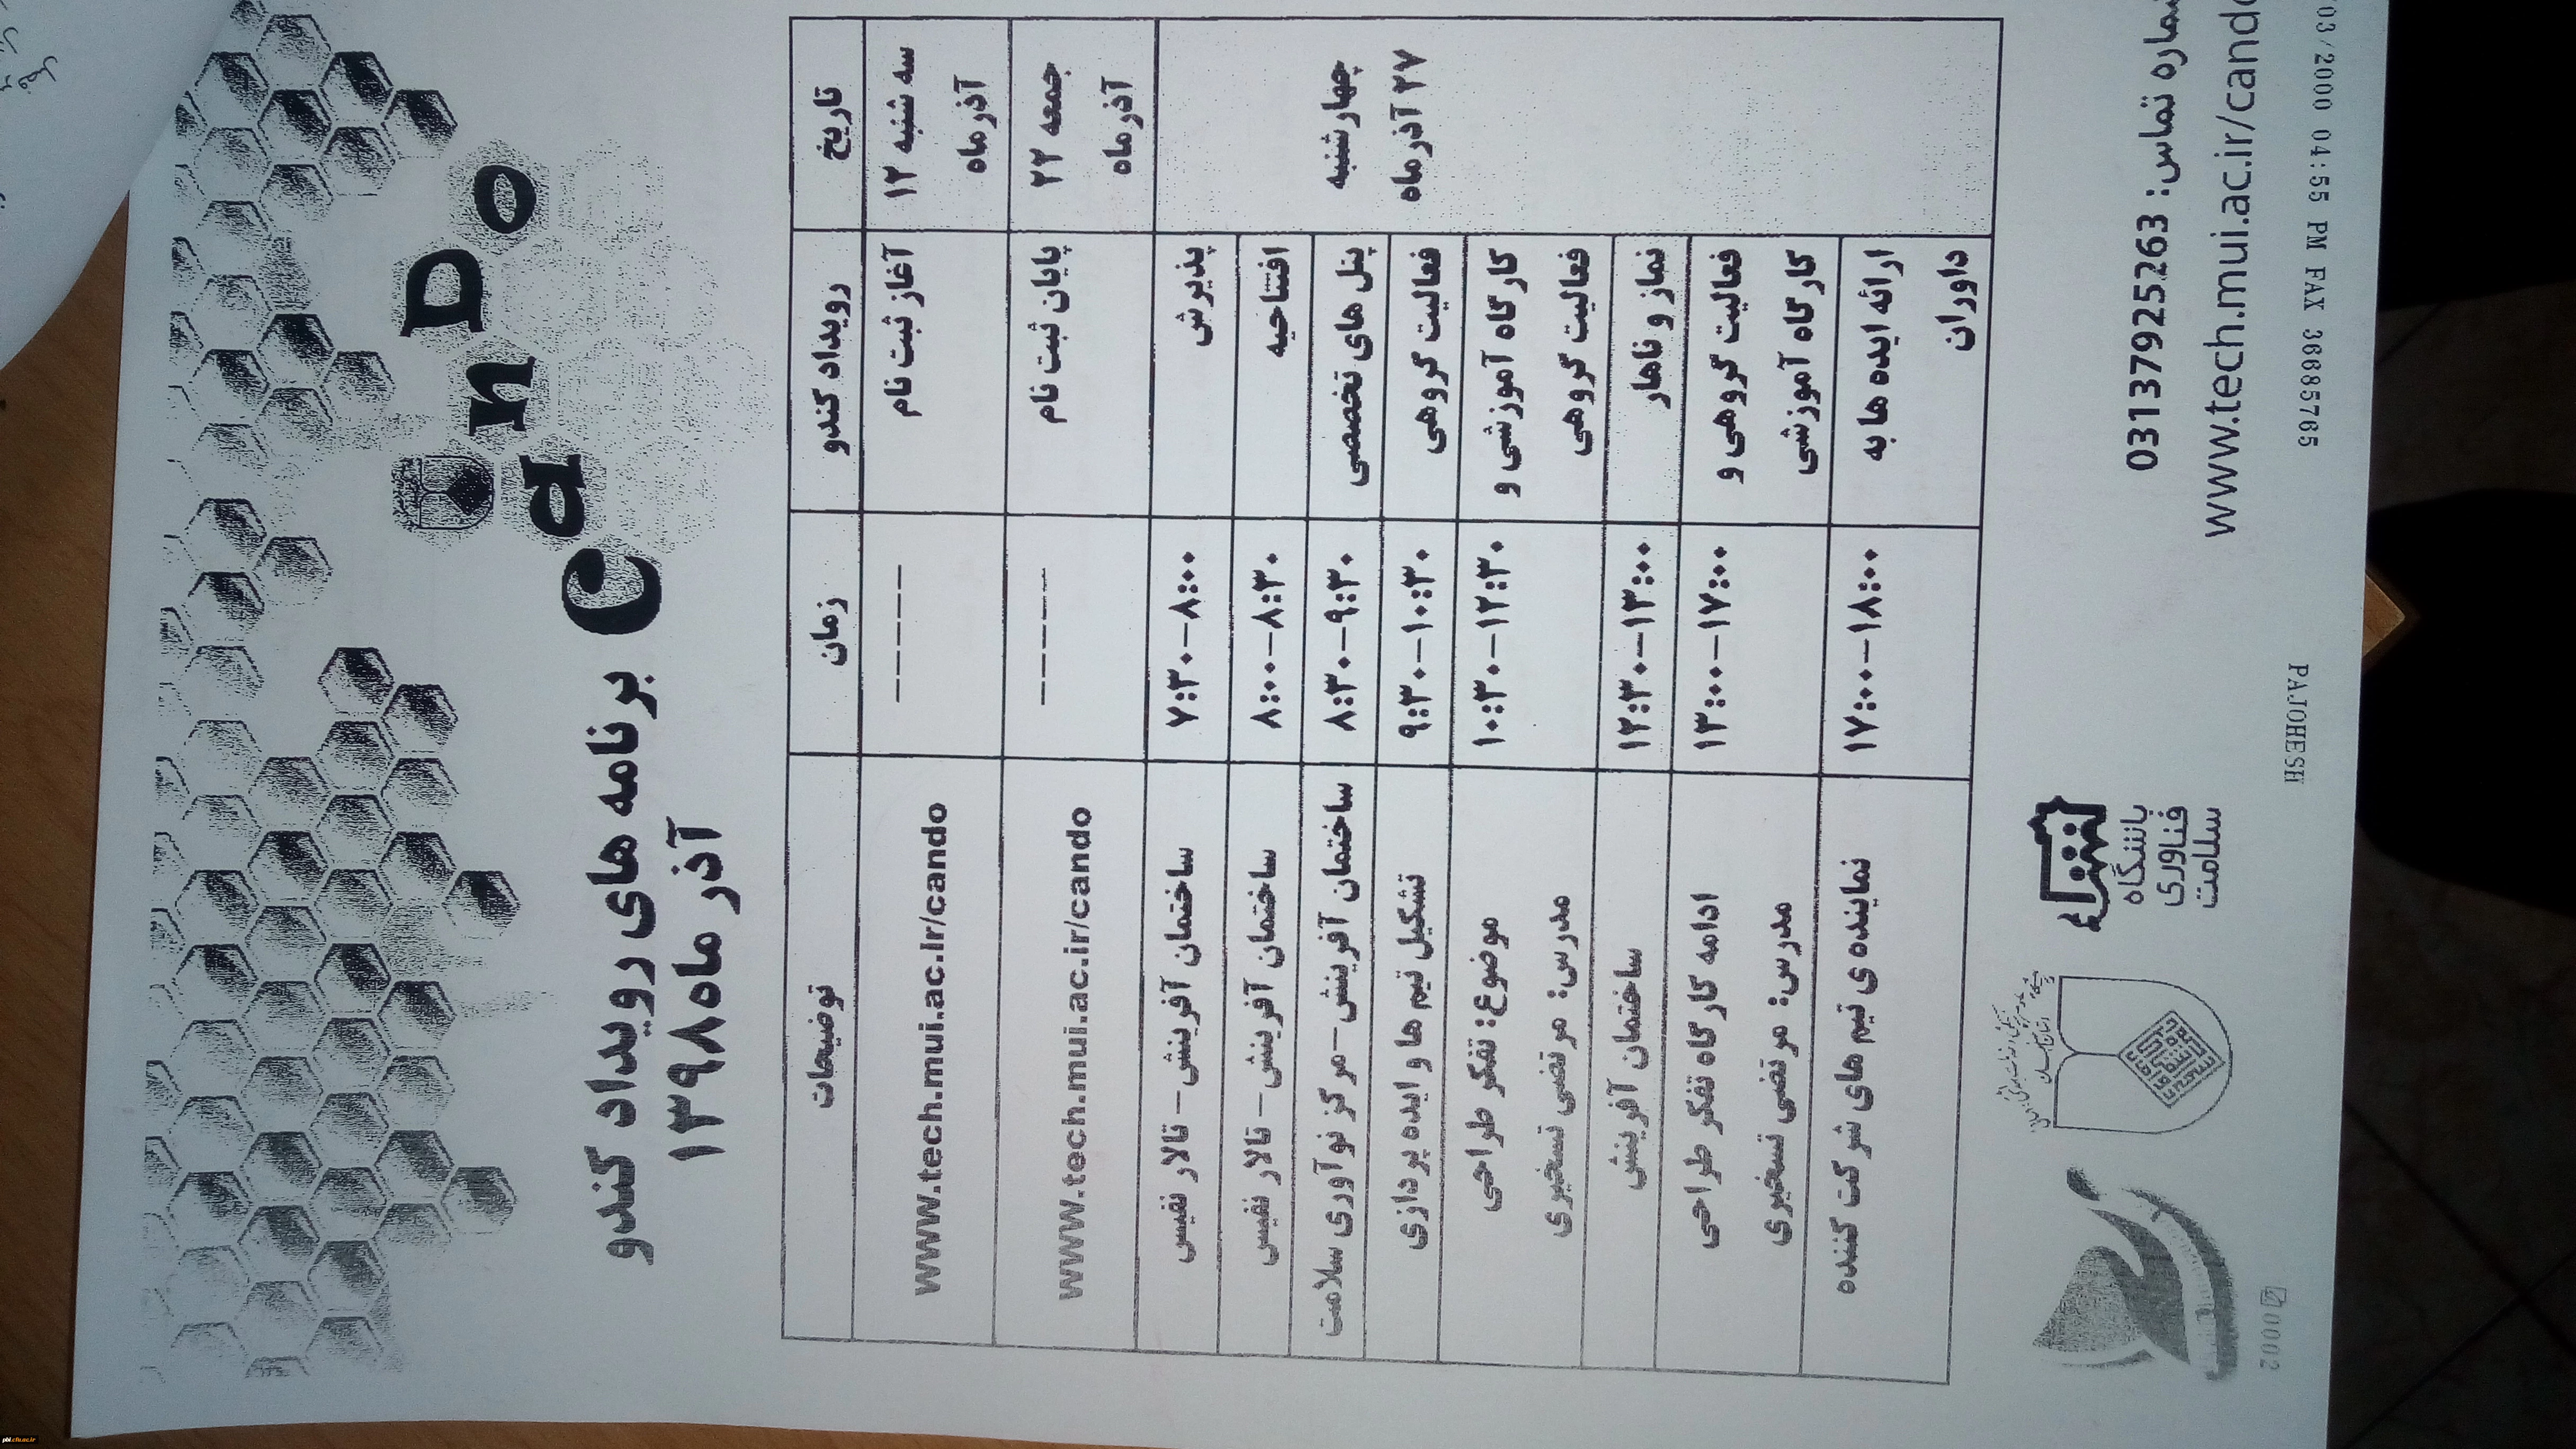 CanDo
برنامه های رویداد کندو
آذر ماه ۱۳۹۸
تاریخ رویداد کندو زمان توضیحات
سه شنبه ۱۲ آغاز ثبت نام ------ www.tech.mui.ac.ir/cando
آذر ماه
جمعه ۲۲ پایان ثبت نام ------ www.tech.mui.ac.ir/cando
آذر ماه
چهارشنبه
۲۷ آذر ماه
پذیرش ۷:۳۰-۸:۰۰ ساختمان آفرینش- تالار نفیس
افتتاحیه ۸:۰۰-۸:۳۰ ساختمان آفرینش- تالار نفیس
پنل های تخصصی ۸:۳۰-۹:۳۰ ساختمان آفرینش-مرکز نوآوری سلامت
فعالیت گروهی ۹:۳۰-۱۰:۳۰ تشکیل تیم ها و ایده پردازی
کارگاه آموزشی و ۱۰:۳۰-۱۲:۳۰ موضوع: تفکر طراحی
فعالیت گروهی مدرس: مرتضی تسخیری
نماز و ناهار ۱۲:۳۰-۱۳:۰۰ ساختمان آفرینش
فعالیت گروهی و ۱۳:۰۰-۱۷:۰۰ ادامه کارگاه تفکر طراحی
کارگاه آموزشی مدرس: مرتضی تسخیری
ارائه ایده ها به ۱۷:۰۰-۱۸:۰۰ نماینده ی تیم های شرکت کننده
داوران
شماره تماس: 03137925263
www.tech.mui.ac.ir/cando
باشگاه
فناوری
سلامت
03/2000 04:55 PM FAX 36685765 PAJOHESH 0002
pbl.cfu.ac.ir